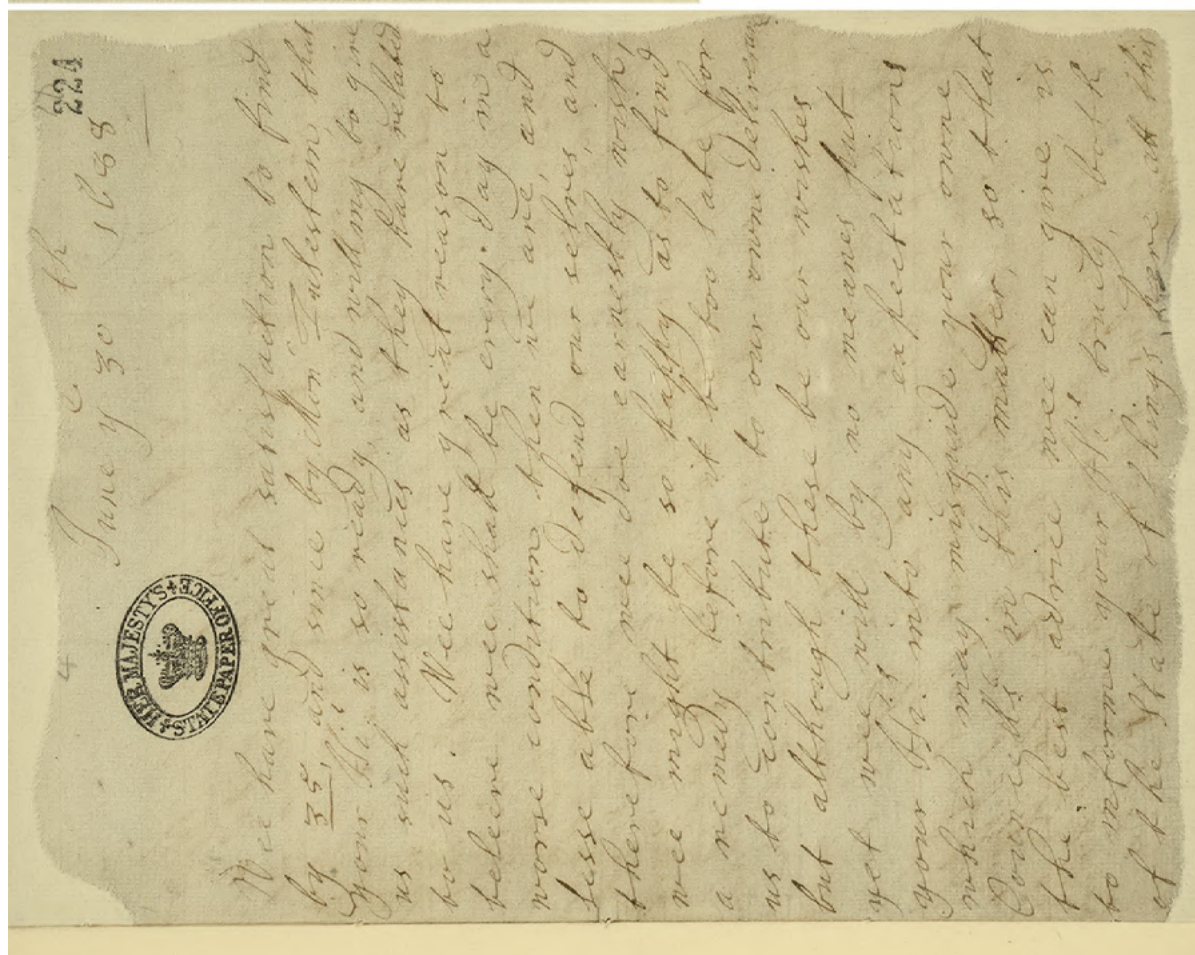 224
June ye 30th 1688
HER MAJESTY'S STATE PAPER OFFICE
Wee have great satisfaction to find
by 35, and since by Mon Zulestein, that
your Hs is so ready, and willing to give
us such assistances as they have related
to us. Wee have great reason to
beleeve wee shall be every day in a
worse condition then wee are, and
lesse able to defend our selves, and
therefore wee doe earnestly wish,
wee might be so happy as to find
a remedy before it be too late for
us to contribute to our owne deliverance
but although these be our wishes
yet wee will by no meanes put
your Hs into any expectations
which may misguide your owne
Councells in this matter, so that
the best advice wee can give is
to informe your Hs truely, both
of the State of things here att this